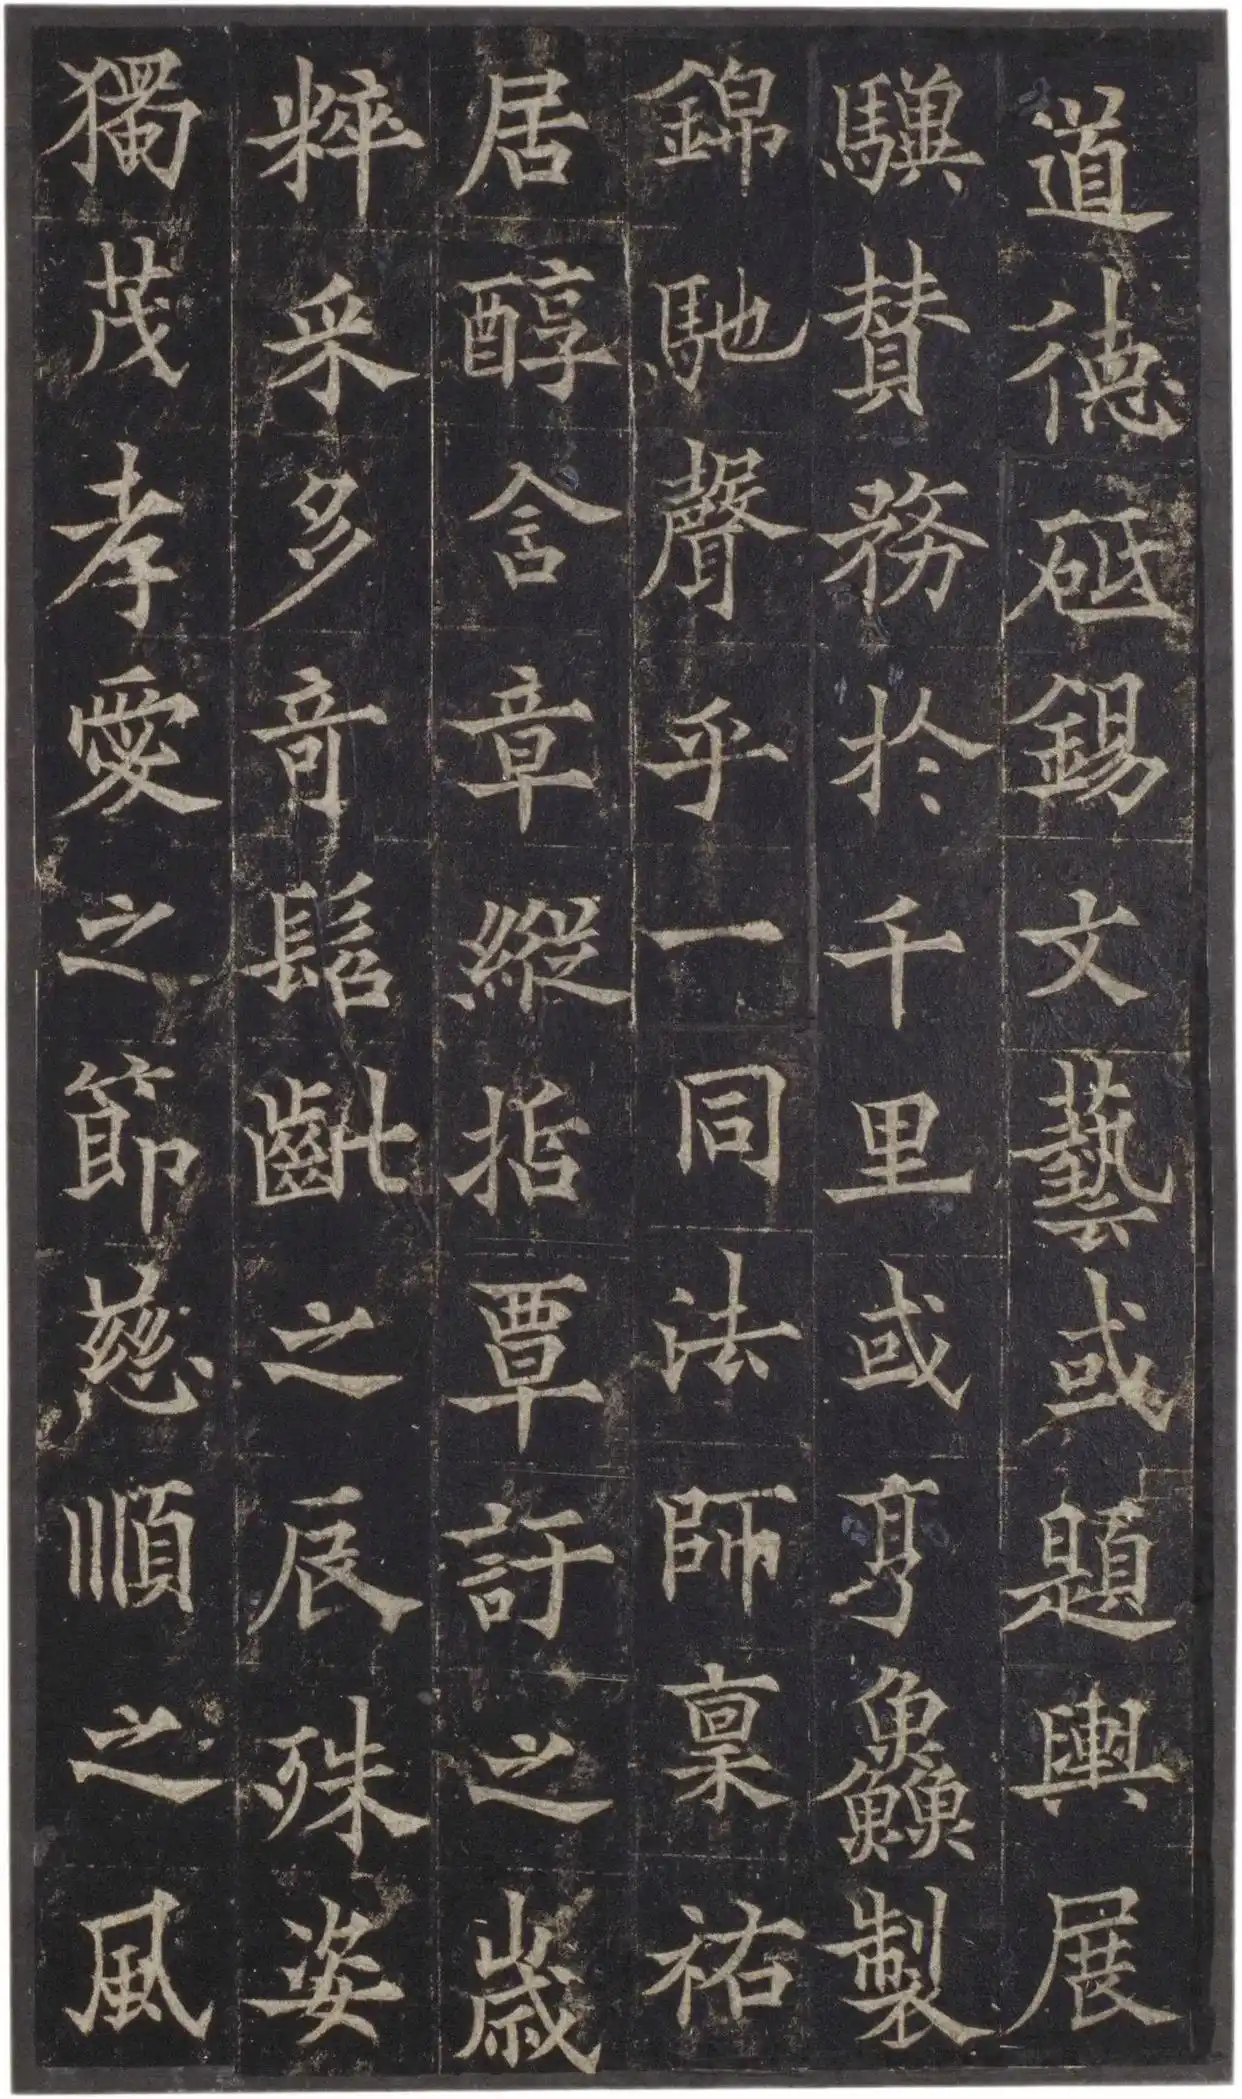 道德砥錫文藝或題輿展
驥贊務於千里或亨鱻製
錦馳聲乎一同法師稟祐
居醇含章縱哲覃訏之歲
粹采多奇髫齔之辰殊姿
獨茂孝愛之節慈順之風